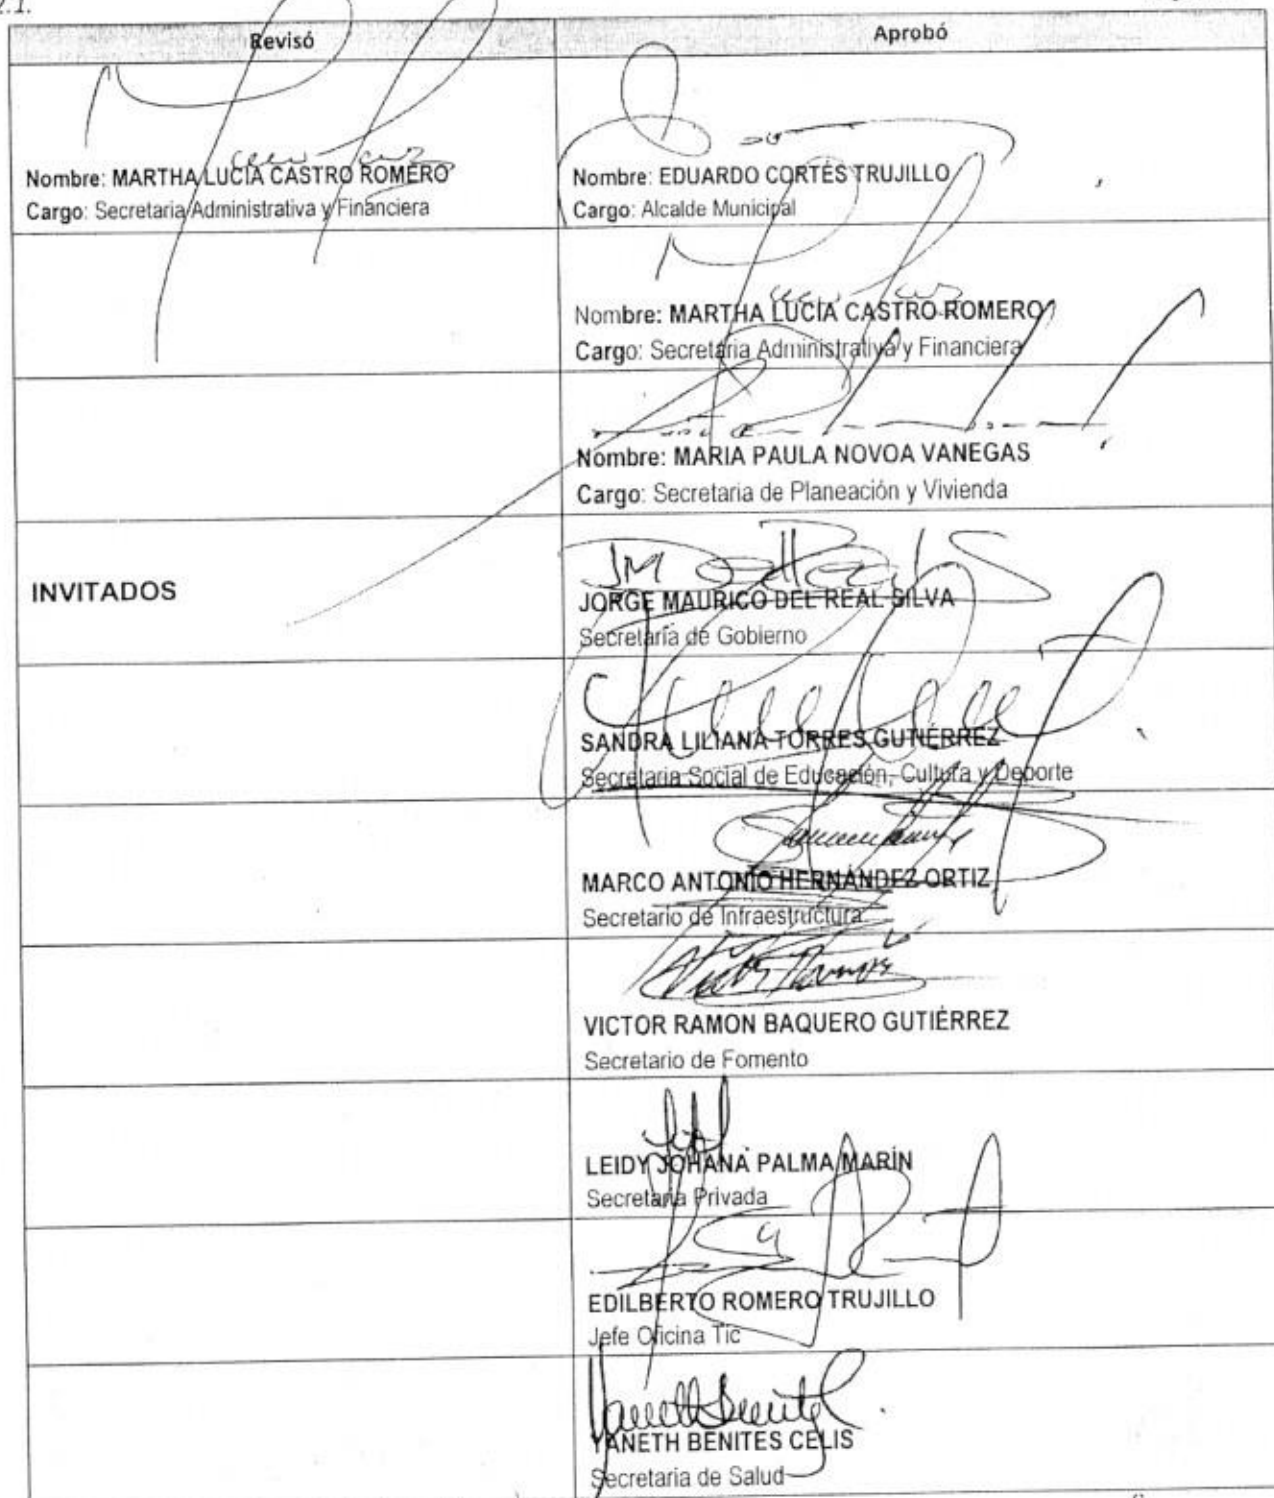 Revisó
Aprobó
Nombre: MARTHA LUCIA CASTRO ROMERO
Cargo: Secretaria Administrativa y Financiera
Nombre: EDUARDO CORTÉS TRUJILLO
Cargo: Alcalde Municipal
Nombre: MARTHA LUCIA CASTRO ROMERO
Cargo: Secretaria Administrativa y Financiera
Nombre: MARIA PAULA NOVOA VANEGAS
Cargo: Secretaria de Planeación y Vivienda
INVITADOS
JORGE MAURICO DEL REAL SILVA
Secretaria de Gobierno
SANDRA LILIANA TORRES GUTIÉRREZ
Secretaria Social de Educación, Cultura y Deporte
MARCO ANTONIO HERNÁNDEZ ORTIZ
Secretario de Infraestructura
VICTOR RAMON BAQUERO GUTIÉRREZ
Secretario de Fomento
LEIDY JOHANA PALMA MARÍN
Secretaria Privada
EDILBERTO ROMERO TRUJILLO
Jefe Oficina Tic
YANETH BENITES CELIS
Secretaria de Salud